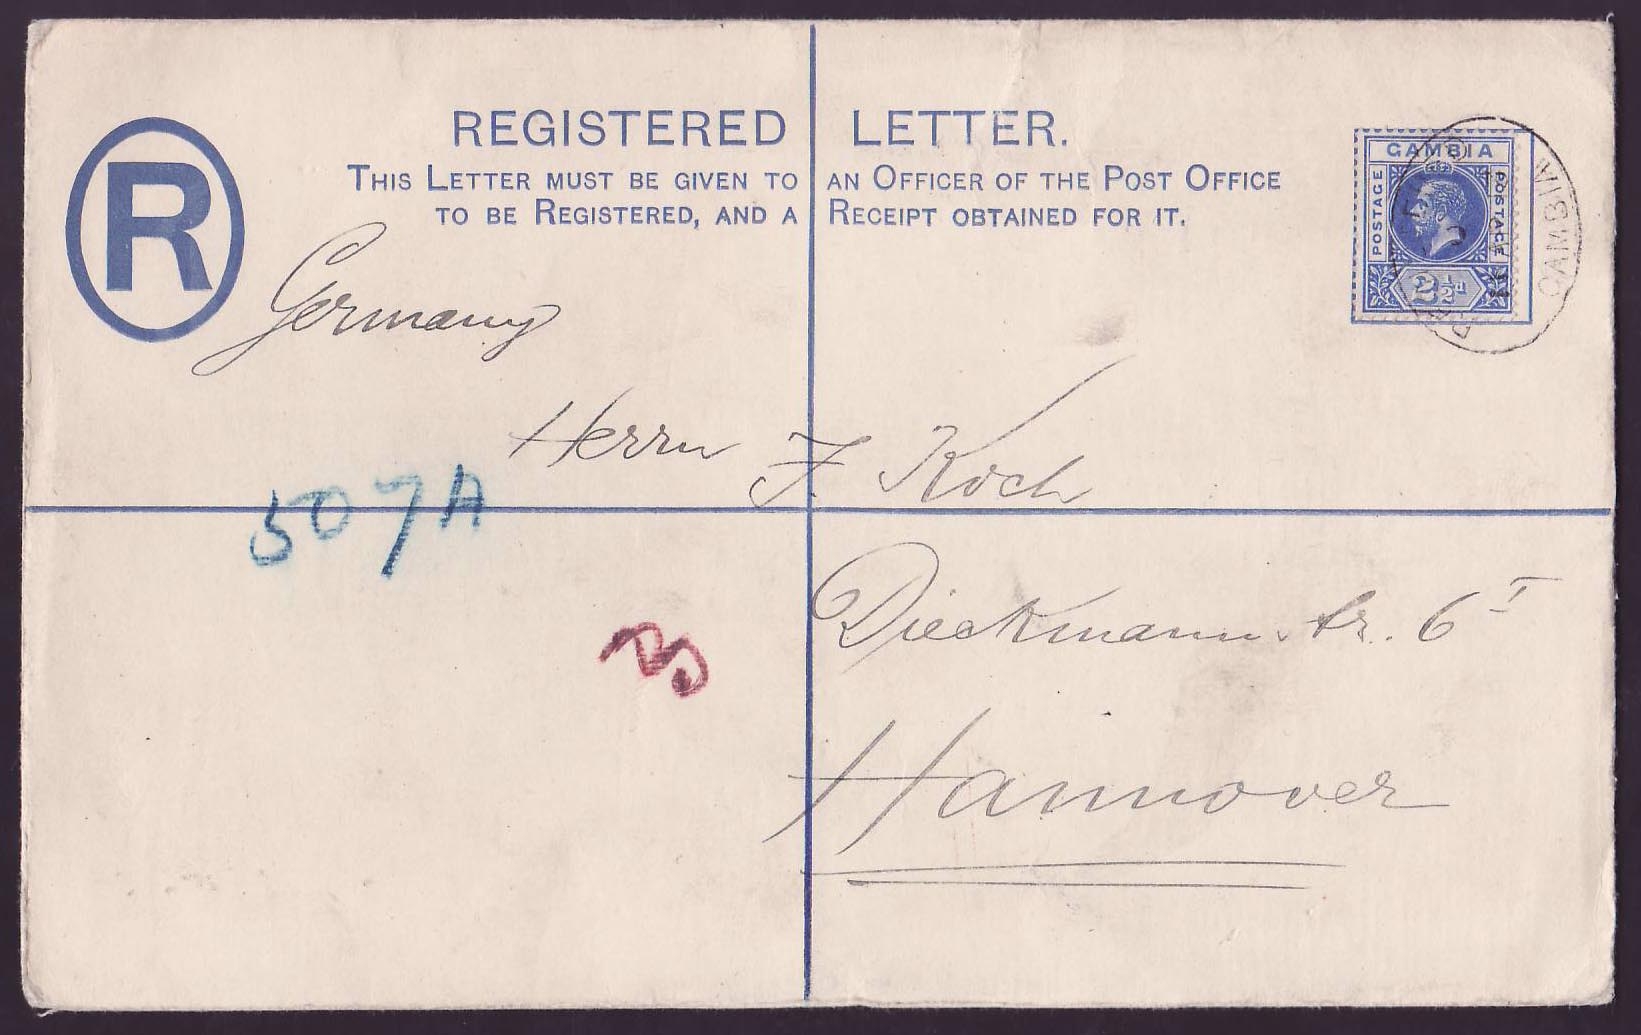 REGISTERED LETTER.
THIS LETTER MUST BE GIVEN TO AN OFFICER OF THE POST OFFICE
TO BE REGISTERED, AND A RECEIPT OBTAINED FOR IT.
R
GAMBIA
POSTAGE POSTAGE
2½d
GAMBIA
Germany
Herrn F. Koch
507A
Dieckmannstr. 6 I
Hannover